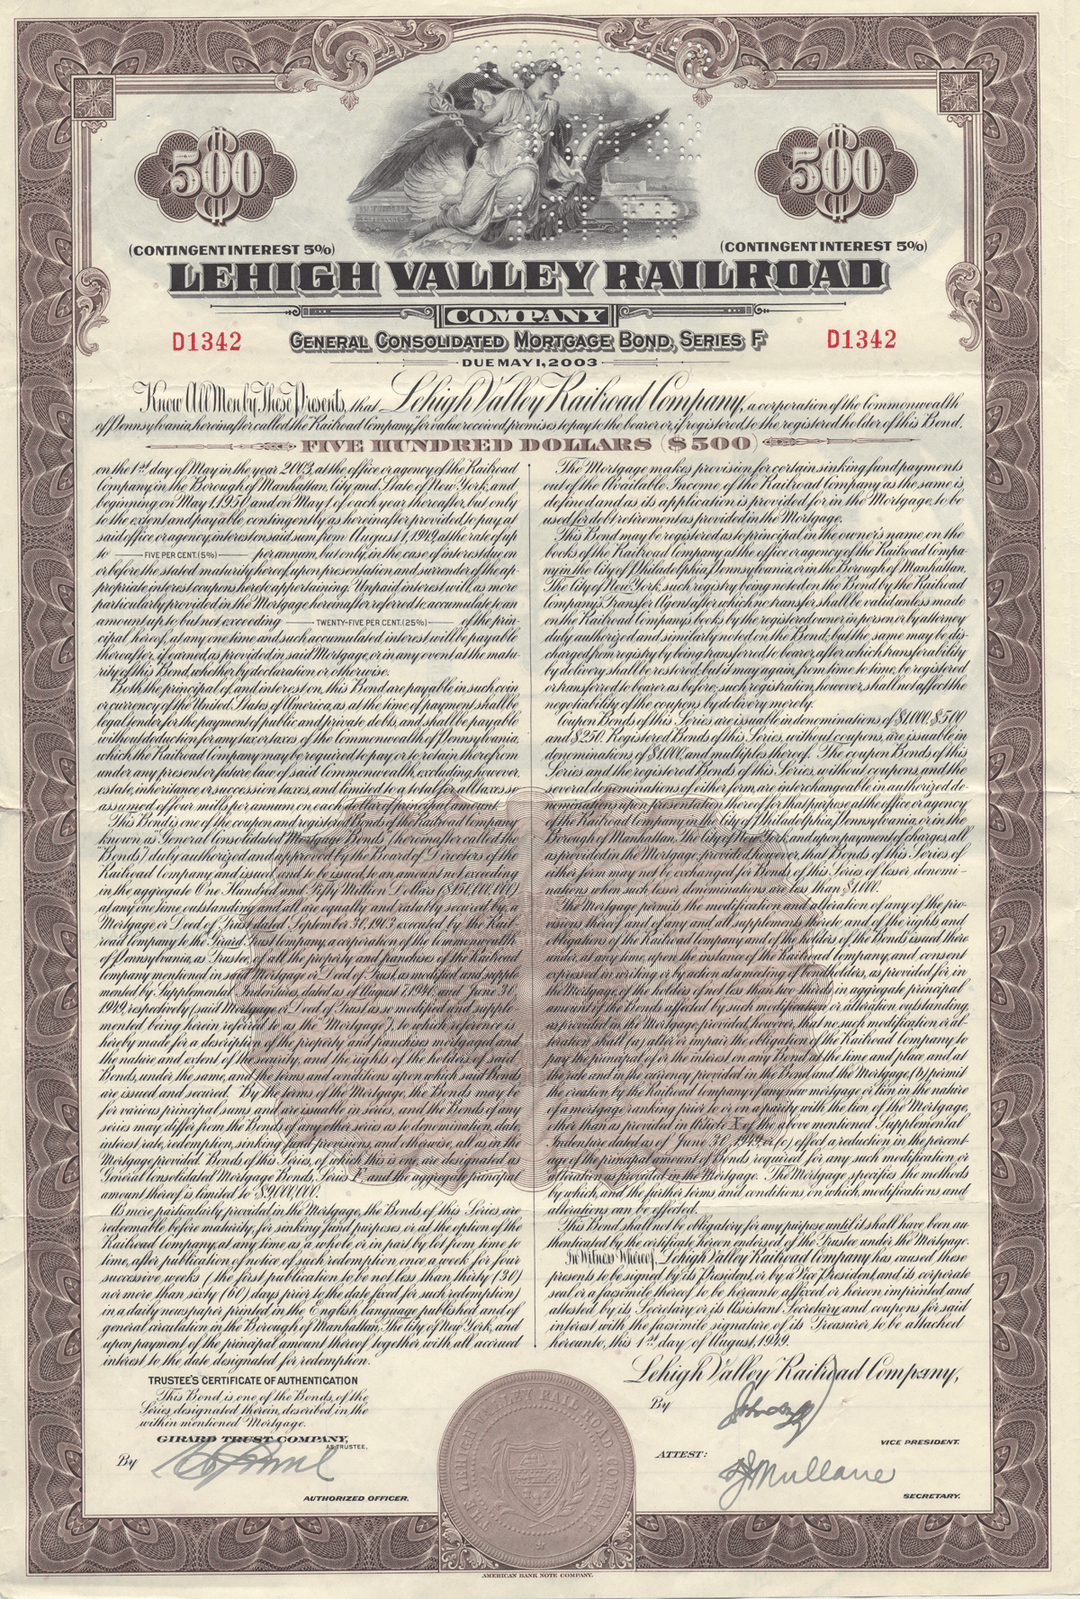 500
500
(CONTINGENT INTEREST 5%)
(CONTINGENT INTEREST 5%)
LEHIGH VALLEY RAILROAD
COMPANY
D1342
GENERAL CONSOLIDATED MORTGAGE BOND, SERIES F
D1342
DUE MAY 1, 2003
Know All Men by These Presents, that Lehigh Valley Railroad Company, a corporation of the Commonwealth
of Pennsylvania, hereinafter called the Railroad Company, for value received promises to pay to the bearer or, if registered, to the registered holder of this Bond,
FIVE HUNDRED DOLLARS ($500)
on the 1st day of May in the year 2003, at the office or agency of the Railroad
Company, in the Borough of Manhattan, City and State of New York, and
beginning on May 1, 1950 and on May 1 of each year thereafter, but only
to the extent and payable contingently as hereinafter provided, to pay, at
said office or agency, interest on said sum from August 1, 1949, at the rate of up
to FIVE PER CENT. (5%) per annum, but only, in the case of interest due on
or before the stated maturity hereof, upon presentation and surrender of the ap-
propriate interest coupons hereto appertaining. Unpaid interest will, as more
particularly provided in the Mortgage hereinafter referred to, accumulate to an
amount up to but not exceeding TWENTY-FIVE PER CENT. (25%) of the prin-
cipal hereof, at any one time and such accumulated interest will be payable
thereafter, if earned, as provided in said Mortgage, or in any event at the matu-
rity of this Bond, whether by declaration or otherwise.
Both the principal of, and interest on, this Bond are payable in such coin
or currency of the United States of America, as at the time of payment shall be
legal tender for the payment of public and private debts, and shall be payable
without deduction for any tax or taxes of the Commonwealth of Pennsylvania,
which the Railroad Company may be required to pay or to retain therefrom
under any present or future law of said Commonwealth, excluding, however,
estate, inheritance or succession taxes, and limited to a total for all taxes so
assumed of four mills per annum on each dollar of principal amount.
This Bond is one of the coupon and registered Bonds of the Railroad Company
known as General Consolidated Mortgage Bonds (hereinafter called the
Bonds) duly authorized and approved by the Board of Directors of the
Railroad Company and issued, and to be issued, to an amount not exceeding
in the aggregate One Hundred and Fifty Million Dollars ($150,000,000)
at any one time outstanding and all are equally and ratably secured by, a
Mortgage or Deed of Trust dated September 30, 1903 executed by the Rail-
road Company to the Girard Trust Company, a corporation of the Commonwealth
of Pennsylvania, as Trustee, of all the property and franchises of the Railroad
Company mentioned in said Mortgage or Deed of Trust, as modified and supple-
mented by Supplemental Indentures, dated as of August 1, 1940, and June 30,
1949, respectively (said Mortgage or Deed of Trust as so modified and supple-
mented being herein referred to as the "Mortgage"), to which reference is
hereby made for a description of the property and franchises mortgaged and
the nature and extent of the security, and the rights of the holders of said
Bonds, under the same, and the terms and conditions upon which said Bonds
are issued and secured. By the terms of the Mortgage, the Bonds may be
for various principal sums and are issuable in series, and the Bonds of any
series may differ from the Bonds of any other series as to denomination, date,
interest rate, redemption, sinking fund provisions, and otherwise, all as in the
Mortgage provided. Bonds of this Series, of which this is one, are designated as
General Consolidated Mortgage Bonds, Series F and the aggregate principal
amount thereof is limited to $9,000,000.
As more particularly provided in the Mortgage, the Bonds of this Series, are
redeemable before maturity, for sinking fund purposes, or at the option of the
Railroad Company, at any time as a whole or in part by lot from time to
time, after publication of notice of such redemption once a week for four
successive weeks (the first publication to be not less than thirty (30)
nor more than sixty (60) days prior to the date fixed for such redemption)
in a daily newspaper printed in the English language, published and of
general circulation in the Borough of Manhattan, The City of New York, and
upon payment of the principal amount thereof together with all accrued
interest to the date designated for redemption.
The Mortgage makes provision for certain sinking fund payments
out of the Available Income of the Railroad Company as the same is
defined and as its application is provided for in the Mortgage, to be
used for debt retirement as provided in the Mortgage.
This Bond may be registered as to principal in the owner's name on the
books of the Railroad Company at the office or agency of the Railroad Compa-
ny in the City of Philadelphia, Pennsylvania, or in the Borough of Manhattan,
The City of New York, such registry being noted on the Bond by the Railroad
Company's Transfer Agent after which no transfer shall be valid unless made
on the Railroad Company's books by the registered owner in person or by attorney
duly authorized and similarly noted on the Bond; but the same may be dis-
charged from registry by being transferred to bearer, after which transferability
by delivery shall be restored, but it may again, from time to time, be registered
or transferred to bearer as before; such registration, however, shall not affect the
negotiability of the coupons by delivery merely.
Coupon Bonds of this Series are issuable in denominations of $1,000, $500
and $250. Registered Bonds of this Series, without coupons, are issuable in
denominations of $1,000 and multiples thereof. The coupon Bonds of this
Series and the registered Bonds of this Series, without coupons, and the
several denominations of either form, are interchangeable in authorized de-
nominations upon presentation thereof for that purpose at the office or agency
of the Railroad Company in the City of Philadelphia, Pennsylvania, or in the
Borough of Manhattan, The City of New York, and upon payment of charges, all
as provided in the Mortgage, provided, however, that Bonds of this Series of
either form may not be exchanged for Bonds of this Series of lesser denomi-
nations when such lesser denominations are less than $1,000.
The Mortgage permits the modification and alteration of any of the pro-
visions thereof and of any and all supplements thereto and of the rights and
obligations of the Railroad Company and of the holders of the Bonds issued there
under, at any time, upon the instance of the Railroad Company, and consent
expressed in writing or by action at a meeting of bondholders, as provided for in
the Mortgage, of the holders of not less than two thirds in aggregate principal
amount of the Bonds affected by such modification or alteration outstanding,
as provided in the Mortgage, provided, however, that no such modification or al-
teration shall (a) alter or impair the obligation of the Railroad Company to
pay the principal of or the interest on any Bond at the time and place and at
the rate and in the currency provided in the Bond and the Mortgage, (b) permit
the creation by the Railroad Company of any new mortgage or lien in the nature
of a mortgage ranking prior to or on a parity with the lien of the Mortgage,
other than as provided in Article X of the above mentioned Supplemental
Indenture dated as of June 30, 1949, or (c) effect a reduction in the percent-
age of the principal amount of Bonds required for any such modification or
alteration as provided in the Mortgage. The Mortgage specifies the methods
by which, and the further terms and conditions on which, modifications and
alterations can be effected.
This Bond shall not be obligatory for any purpose until it shall have been au-
thenticated by the certificate hereon endorsed of the Trustee under the Mortgage.
In Witness Whereof, Lehigh Valley Railroad Company has caused these
presents to be signed by its President, or by a Vice President, and its corporate
seal or a facsimile thereof to be hereunto affixed or hereon imprinted and
attested by its Secretary or its Assistant Secretary, and coupons for said
interest with the facsimile signature of its Treasurer to be attached
hereunto, this 1st day of August, 1949.
TRUSTEE'S CERTIFICATE OF AUTHENTICATION
This Bond is one of the Bonds, of the
Series designated therein, described in the
within mentioned Mortgage.
GIRARD TRUST COMPANY,
AS TRUSTEE.
By
AUTHORIZED OFFICER.
Lehigh Valley Railroad Company,
By
VICE PRESIDENT.
ATTEST:
Mullane
SECRETARY.
THE LEHIGH VALLEY RAIL ROAD COMPANY
AMERICAN BANK NOTE COMPANY.